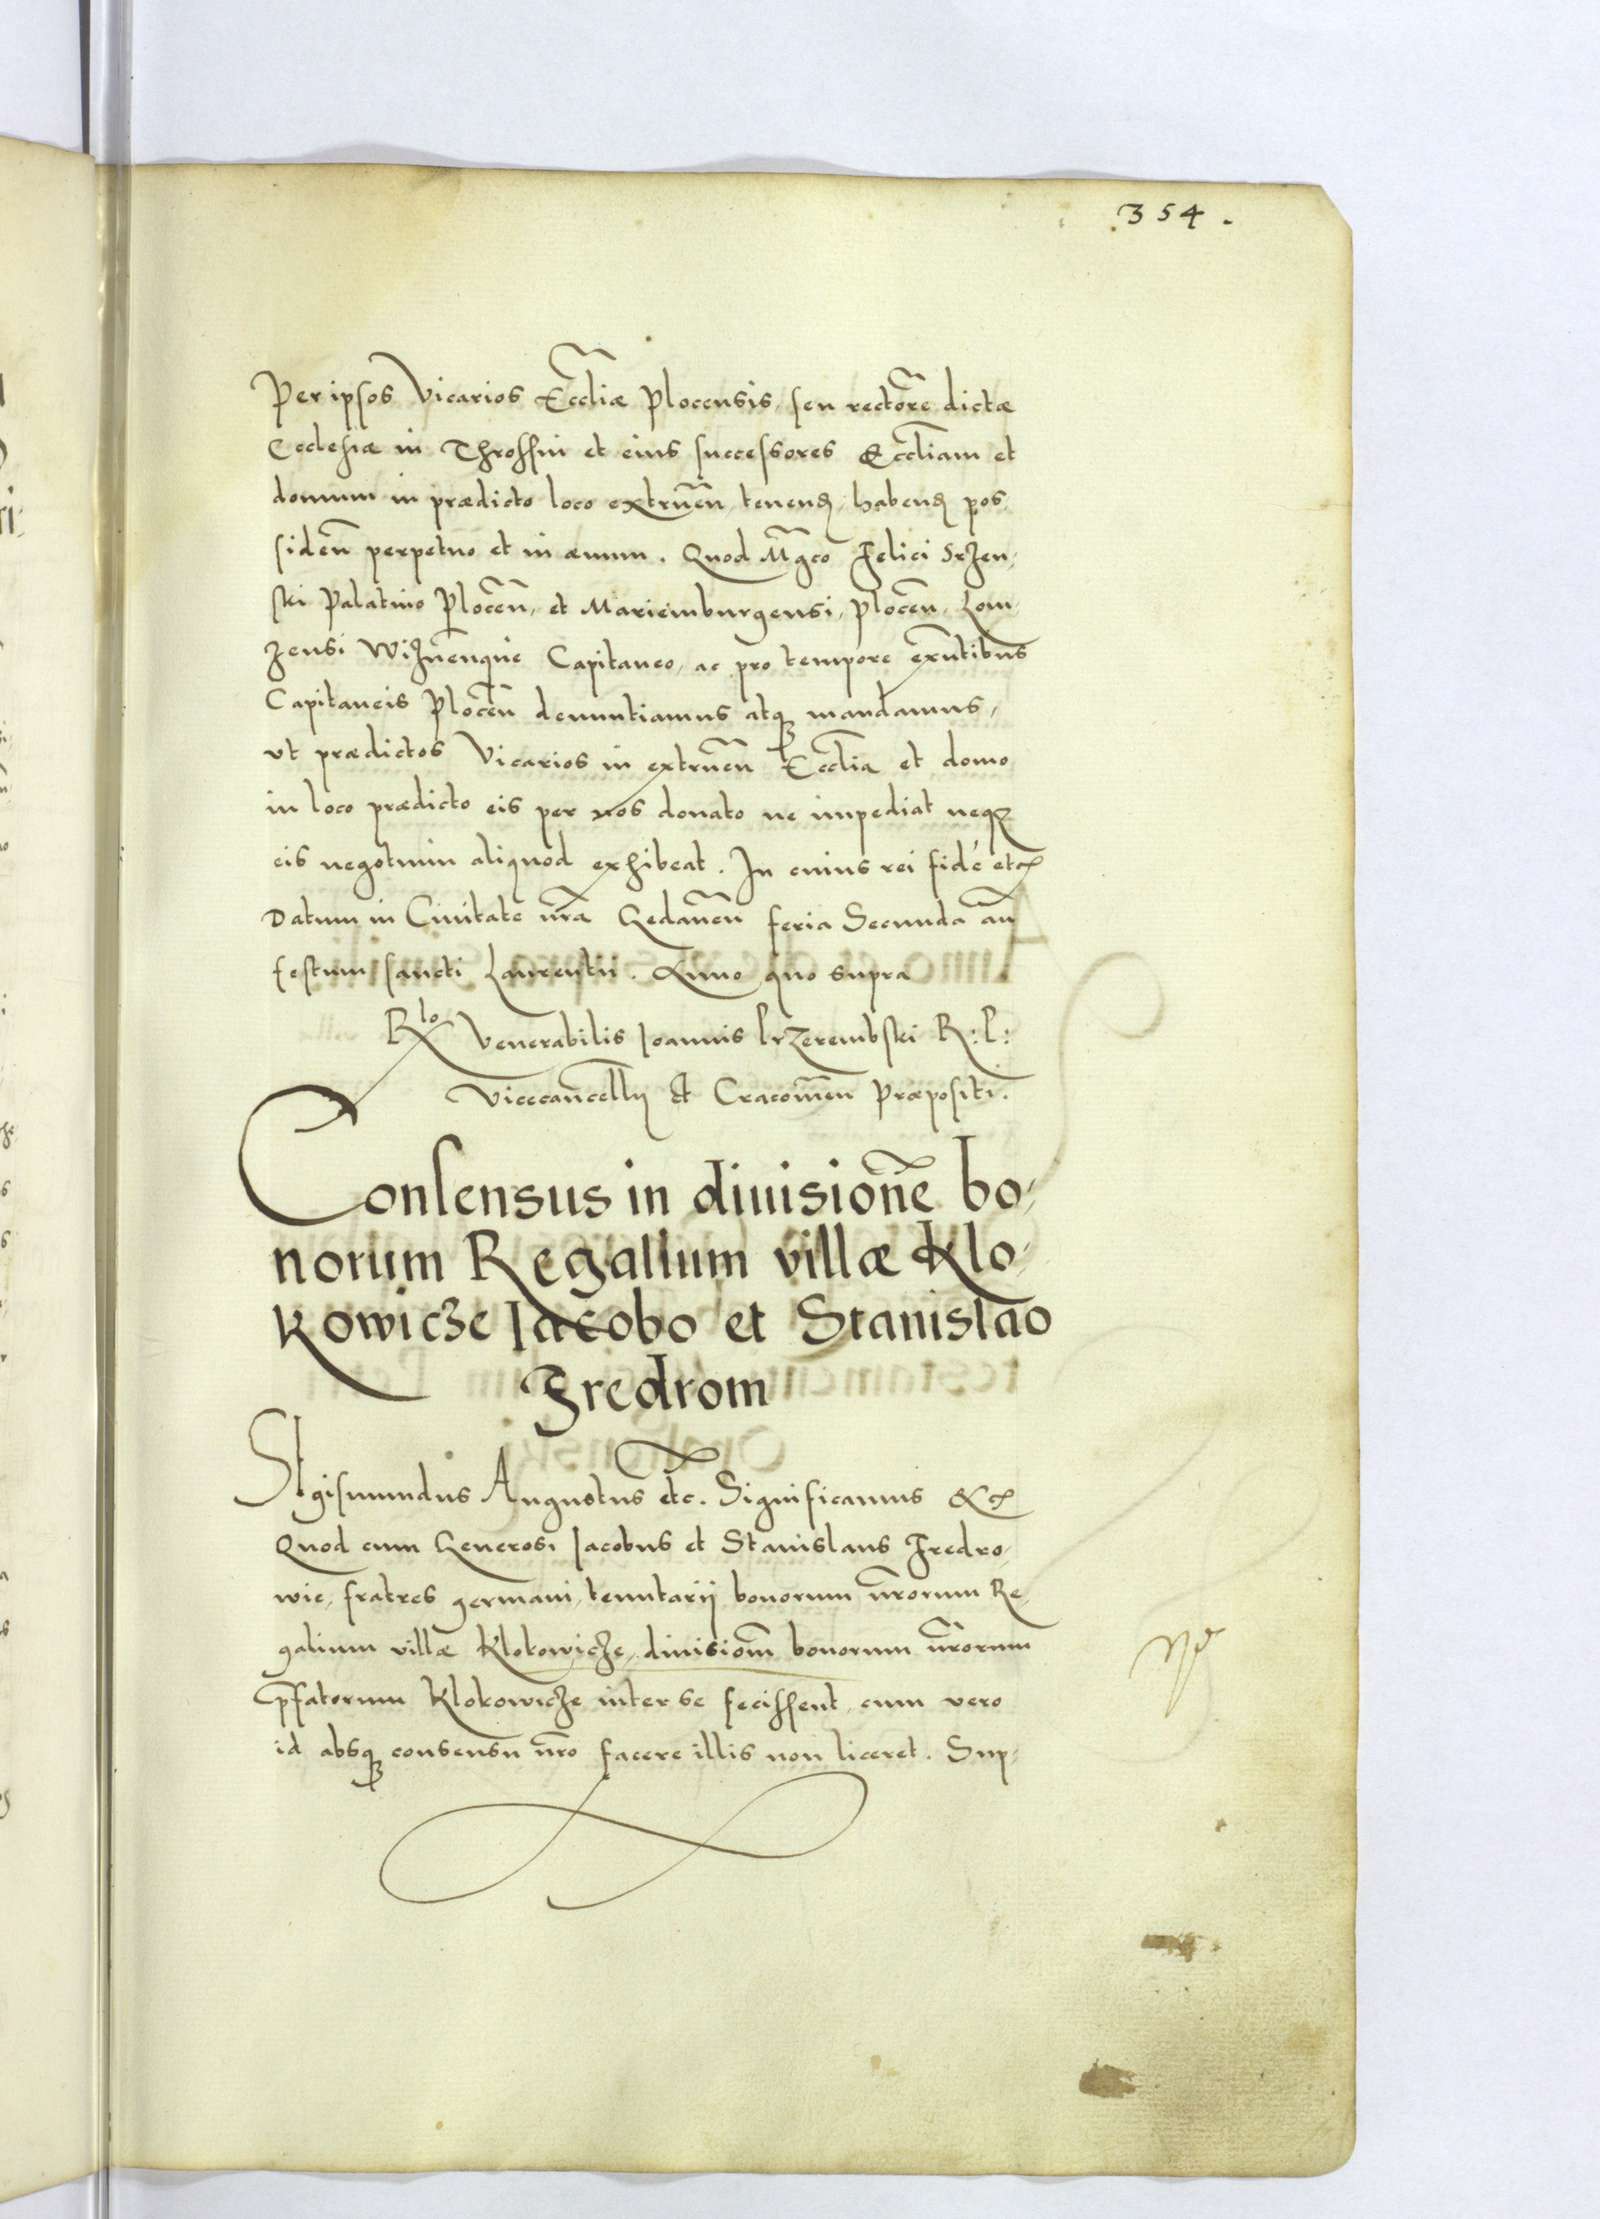 354.
Per ipsos Vicarios Eccliæ Plocensis, seu rectore dictæ
Ecclesiæ in Throssin et eius successores Eccliam et
domum in prædicto loco extruen, tenend, habend pos
siden perpetuo et in æuum. Quod Mgco Felici Srzen,
ski Palatino Plocen, et Mariemburgensi, Plocen, Lom,
zensi Wiznenque Capitaneo, ac pro tempore exntibus
Capitaneis Plocen denuntiamus atq mandamus,
vt prædictos Vicarios in extruen Ecclia et domo
in loco prædicto eis per nos donato ne impediat neq
eis negotium aliquod exhibeat. In cuius rei fidé etc
Datum in Ciuitate nra Gedanen feria Secunda an
festum sancti Laurentii. Anno quo supra
Rlo Venerabilis Joannis Przerembski R: P:
Vicecancellij et Cracouien Præpositi.
Consensus in diuisione bo,
norum Regalium villæ Klo,
kowicze Iacobo et Stanislao
Fredrom
Sigismundus Augustus etc. Significamus &c
Quod cum Generosi Iacobus et Stanislaus Fredro,
wie, fratres germani, tenutarij bonorum nrorum Re,
galium villæ Klokowicze, diuisiom bonorum nrorum
pfatorum Klokowicze inter se fecissent, cum vero
id absq consensu nro facere illis non liceret. Sup,